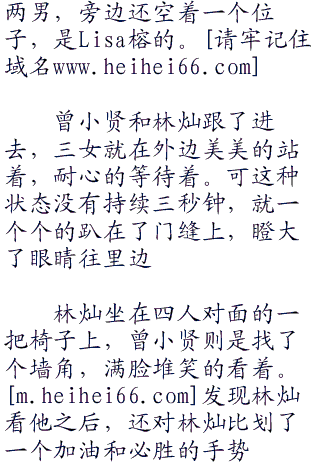 两男，旁边还空着一个位
子，是Lisa榕的。[请牢记住
域名www.heihei66.com]
曾小贤和林灿跟了进
去，三女就在外边美美的站
着，耐心的等待着。可这种
状态没有持续三秒钟，就一
个个的趴在了门缝上，瞪大
了眼睛往里边
林灿坐在四人对面的一
把椅子上，曾小贤则是找了
个墙角，满脸堆笑的看着。
[m.heihei66.com]发现林灿
看他之后，还对林灿比划了
一个加油和必胜的手势